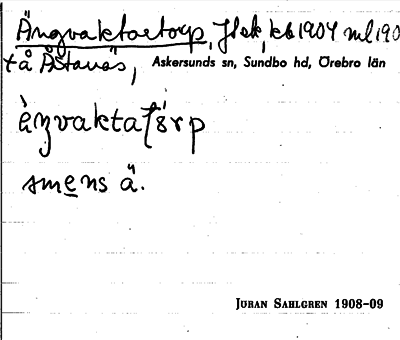 Ängvaktaretorp, kb 1904 ml 190
tå Åstanäs, Askersunds sn, Sundbo hd, Örebro län
smens ä.
JÖRAN SAHLGREN 1908-09